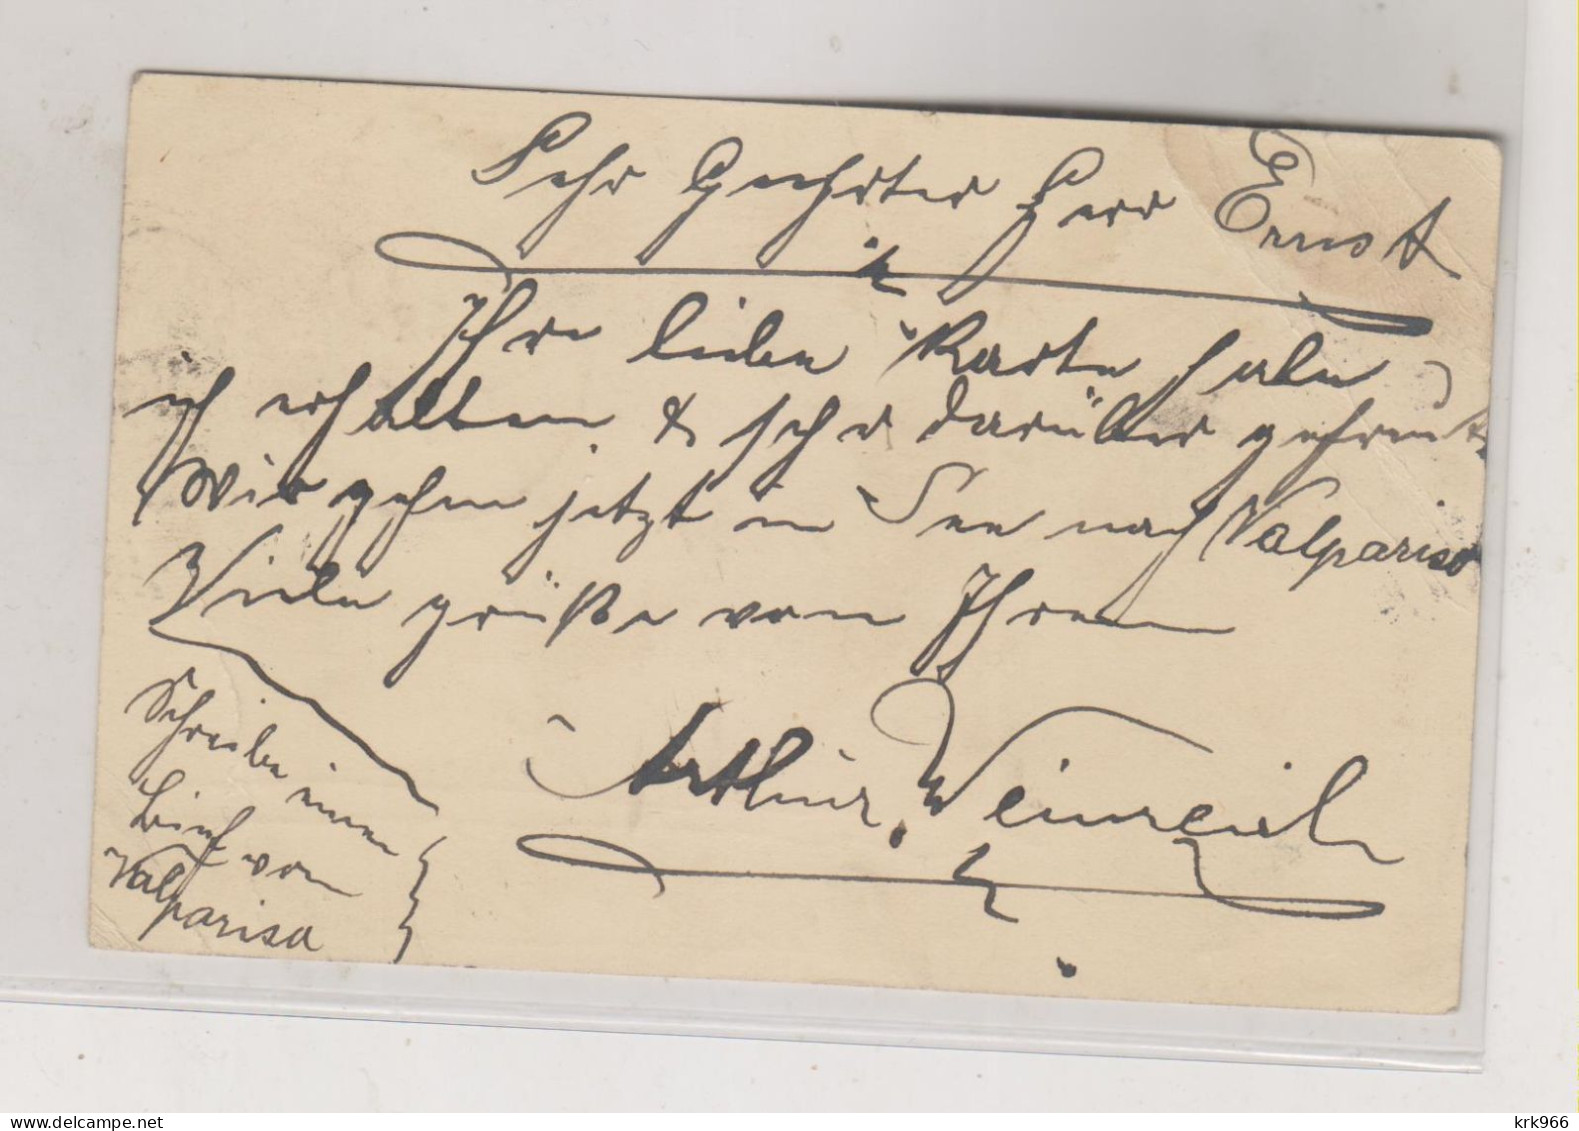 Sehr Geehrter Herr Ernst
Ihre lieben Karte habe
ich erhalten & sehr darüber gefreut
Wir gehen jetzt in See nach Valpariso
Viele grüße von Ihrem
Arthur
Schreiben einen
Brief von
Valpariso
www.delcampe.net
krk966